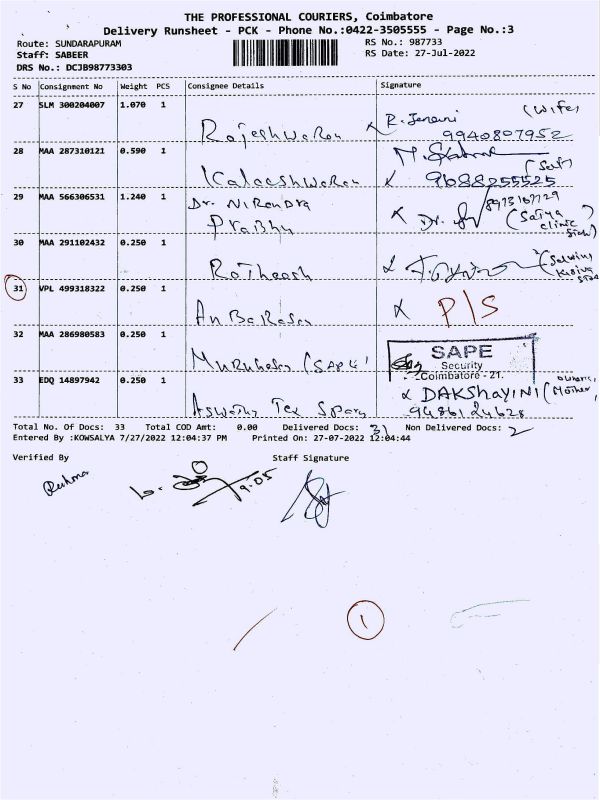 THE PROFESSIONAL COURIERS, Coimbatore
Delivery Runsheet - PCK - Phone No.:0422-3505555 - Page No.:3
Route: SUNDARAPURAM RS No.: 987733
Staff: SABEER RS Date: 27-Jul-2022
DRS No.: DCJB98773303
S No Consignment No Weight PCS Consignee Details Signature
27 SLM 300204007 1.070 1
Rajeshwaran R. Janani (Wife)
9940807952
28 MAA 287310121 0.590 1
Kaleeshwaran (Self)
9688255525
29 MAA 566306531 1.240 1 Dr. Nirendra 8973167729
Prabhu Dr. (Satya Clinic
30 MAA 291102432 0.250 1
Ratheesh
31 VPL 499318322 0.250 1
P/S
32 MAA 286980583 0.250 1
(SAPE) SAPE
Security
Coimbatore - 21.
33 EDQ 14897942 0.250 1 DAKSHAYINI (Mother)
Aswathy Tex 9486124628
Total No. Of Docs: 33 Total COD Amt: 0.00 Delivered Docs: 31 Non Delivered Docs: 2
Entered By :KOWSALYA 7/27/2022 12:04:37 PM Printed On: 27-07-2022 12:04:44
Verified By Staff Signature
9.05
1